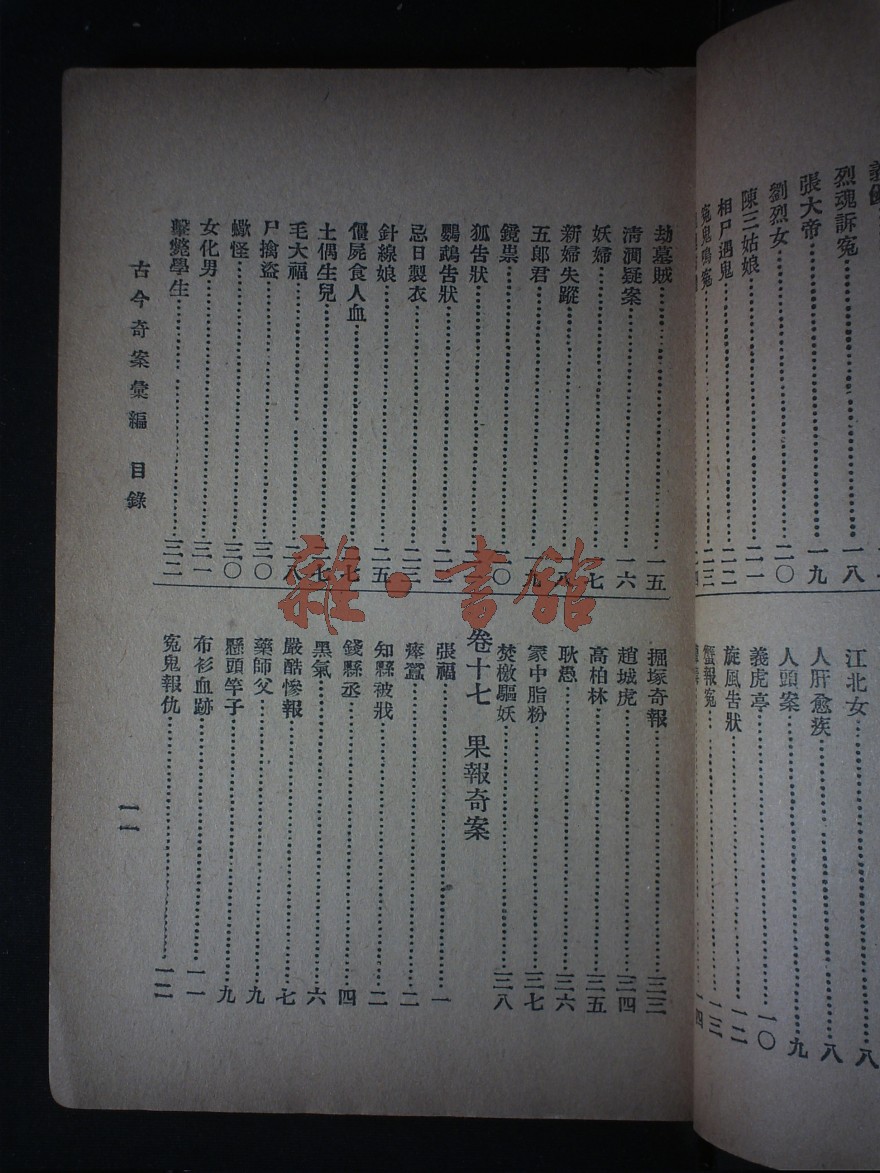 烈魂訴冤⋯⋯一八
張大帝⋯⋯一九
劉烈女⋯⋯二〇
陳三姑娘⋯⋯二一
相尸遇鬼⋯⋯二二
江北女⋯⋯八
人肝愈疾⋯⋯八
人頭案⋯⋯九
義虎亭⋯⋯一〇
旋風告狀⋯⋯一二
蟹報冤⋯⋯一三
劫墓賊⋯⋯一五
清澗疑案⋯⋯一六
妖婦⋯⋯一七
新婦失蹤⋯⋯一八
五郎君⋯⋯一九
鏡祟⋯⋯二〇
狐告狀
鸚鵡告狀
忌日製衣⋯⋯二三
針線娘⋯⋯二五
僵屍食人血⋯⋯二七
土偶生兒⋯⋯二七
毛大福⋯⋯二八
尸擒盜⋯⋯三〇
蠍怪⋯⋯三〇
女化男⋯⋯三一
擊斃學生⋯⋯三二
掘塚奇報⋯⋯三三
趙城虎⋯⋯三四
高柏林⋯⋯三五
耿愚⋯⋯三六
冢中脂粉⋯⋯三七
焚檄驅妖⋯⋯三八
卷十七 果報奇案
張福⋯⋯一
瘞蠶⋯⋯二
知縣被戕⋯⋯二
錢縣丞⋯⋯四
黑氣⋯⋯六
嚴酷慘報⋯⋯七
藥師父⋯⋯九
懸頭竿子⋯⋯九
布衫血跡⋯⋯一一
冤鬼報仇⋯⋯一二
古今奇案彙編 目錄
一一
雜·書館